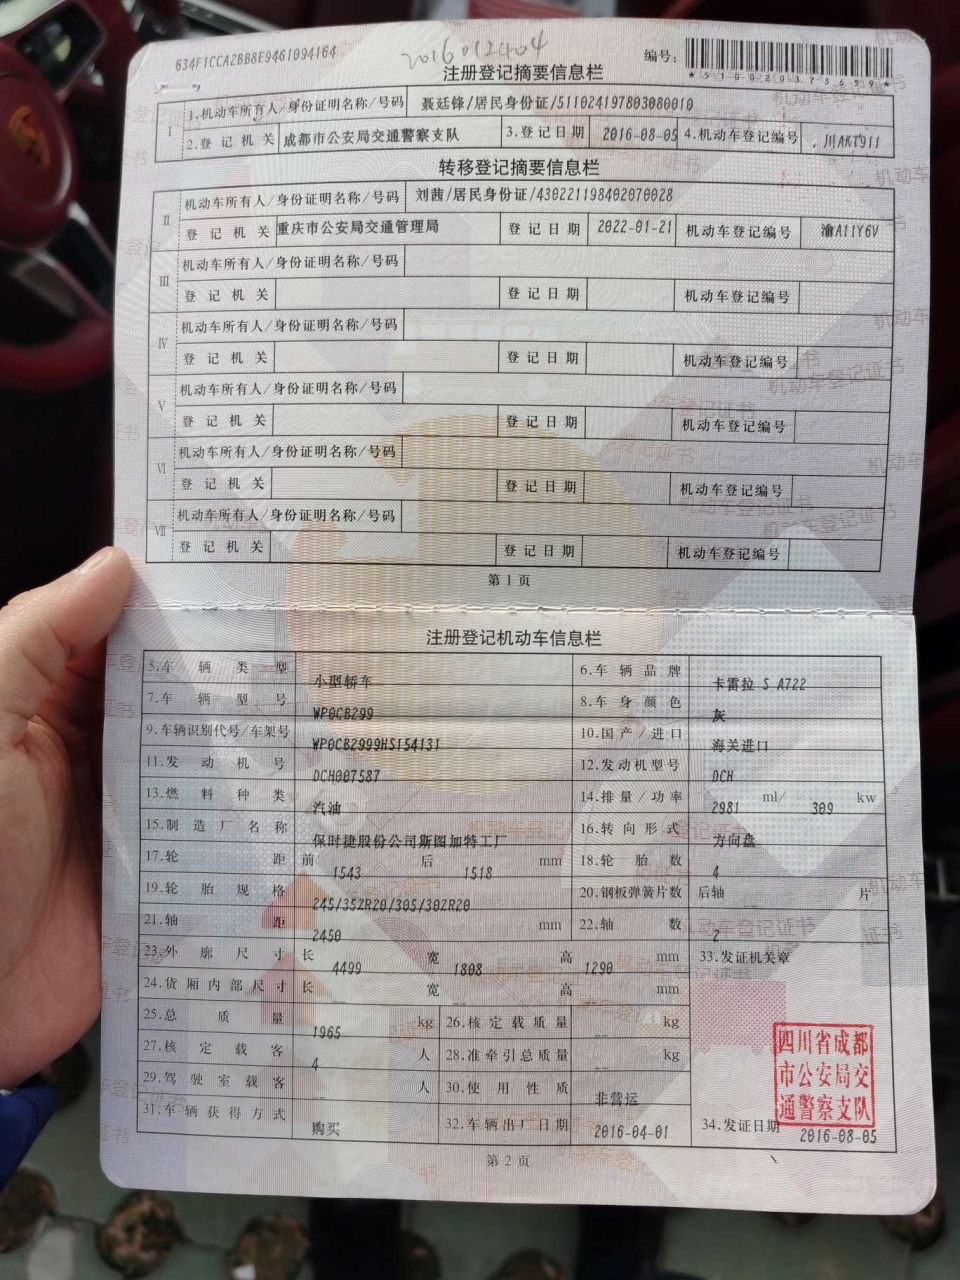 634F1CCA2BB8E9461094164
2016012404
编号:
*510020373659*
注册登记摘要信息栏
I 1.机动车所有人/身份证明名称/号码 聂廷锋/居民身份证/511024197803080010
2.登记机关 成都市公安局交通警察支队 3.登记日期 2016-08-05 4.机动车登记编号 川AKT911
转移登记摘要信息栏
II 机动车所有人/身份证明名称/号码 刘茜/居民身份证/430221198402070028
登记机关 重庆市公安局交通管理局 登记日期 2022-01-21 机动车登记编号 渝A11Y6V
III 机动车所有人/身份证明名称/号码
登记机关 登记日期 机动车登记编号
IV 机动车所有人/身份证明名称/号码
登记机关 登记日期 机动车登记编号
V 机动车所有人/身份证明名称/号码
登记机关 登记日期 机动车登记编号
VI 机动车所有人/身份证明名称/号码
登记机关 登记日期 机动车登记编号
VII 机动车所有人/身份证明名称/号码
登记机关 登记日期 机动车登记编号
第1页
注册登记机动车信息栏
5.车辆类型 小型轿车 6.车辆品牌 卡雷拉 S A722
7.车辆型号 WP0CB299 8.车身颜色 灰
9.车辆识别代号/车架号 WP0CB2999HS154131 10.国产/进口 海关进口
11.发动机号 DCH007587 12.发动机型号 DCH
13.燃料种类 汽油 14.排量/功率 2981 ml/ 309 kw
15.制造厂名称 保时捷股份公司斯图加特工厂 16.转向形式 方向盘
17.轮距 前 1543 后 1518 mm 18.轮胎数 4
19.轮胎规格 245/35ZR20/305/30ZR20 20.钢板弹簧片数 后轴 -- 片
21.轴距 2450 mm 22.轴数 2
23.外廓尺寸 长 4499 宽 1808 高 1290 mm 33.发证机关章
24.货厢内部尺寸 长 -- 宽 -- 高 -- mm
25.总质量 1965 kg 26.核定载质量 -- kg
27.核定载客 4 人 28.准牵引总质量 -- kg
29.驾驶室载客 -- 人 30.使用性质 非营运
31.车辆获得方式 购买 32.车辆出厂日期 2016-04-01 34.发证日期 2016-08-05
四川省成都
市公安局交
通警察支队
第2页